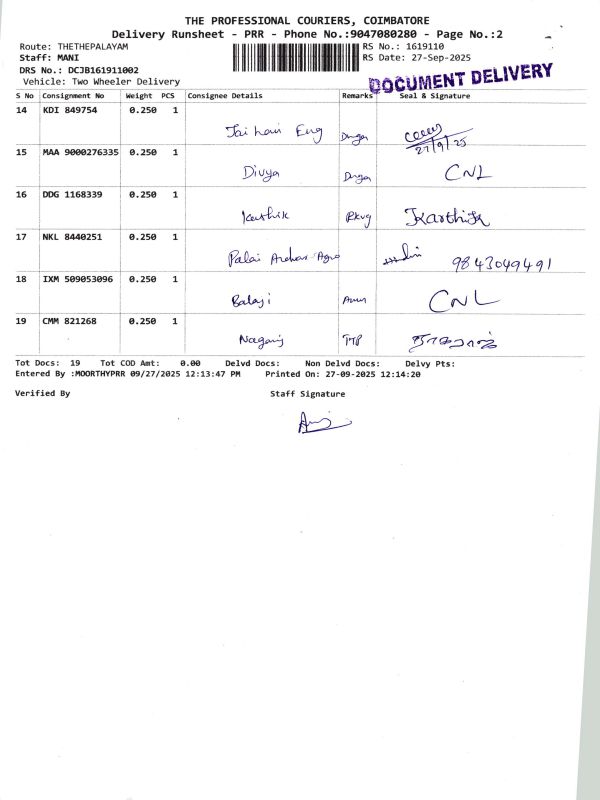 THE PROFESSIONAL COURIERS, COIMBATORE
Delivery Runsheet - PRR - Phone No.:9047080280 - Page No.:2
Route: THETHEPALAYAM RS No.: 1619110
Staff: MANI RS Date: 27-Sep-2025
DRS No.: DCJB161911002
Vehicle: Two Wheeler Delivery
DOCUMENT DELIVERY
S No Consignment No Weight PCS Consignee Details Remarks Seal & Signature
14 KDI 849754 0.250 1
Jai hari Eng
27/9/25
15 MAA 9000276335 0.250 1
Divya CNL
16 DDG 1168339 0.250 1
Karthik Karthik
17 NKL 8440251 0.250 1
Palai 9843049491
18 IXM 509053096 0.250 1
Balaji CNL
19 CMM 821268 0.250 1
Nagaraj TTP நாகராஜ்
Tot Docs: 19 Tot COD Amt: 0.00 Delvd Docs: Non Delvd Docs: Delvy Pts:
Entered By :MOORTHYPRR 09/27/2025 12:13:47 PM Printed On: 27-09-2025 12:14:20
Verified By Staff Signature